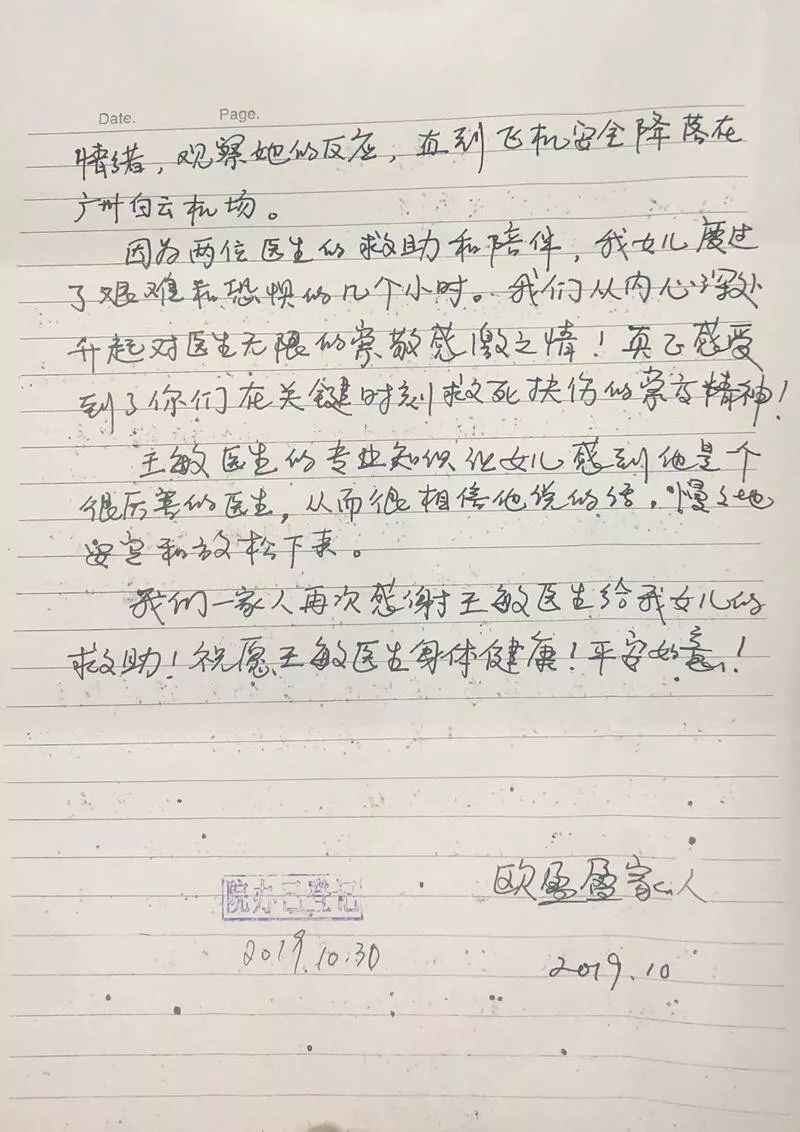 Date. Page.
情绪，观察她的反应，直到飞机安全降落在
广州白云机场。
因为两位医生的救助和陪伴，我女儿度过
了艰难和恐惧的几个小时。我们从内心深处
升起对医生无限的崇敬感激之情！真正感受
到了你们在关键时刻救死扶伤的崇高精神！
王敏医生的专业知识让女儿感到他是个
很厉害的医生，从而很相信他说的话，慢々地
安定和放松下来。
我们一家人再次感谢王敏医生给我女儿的
救助！祝愿王敏医生身体健康！平安如意！
欧盈盈家人
院办已登记
2019.10.30
2019.10